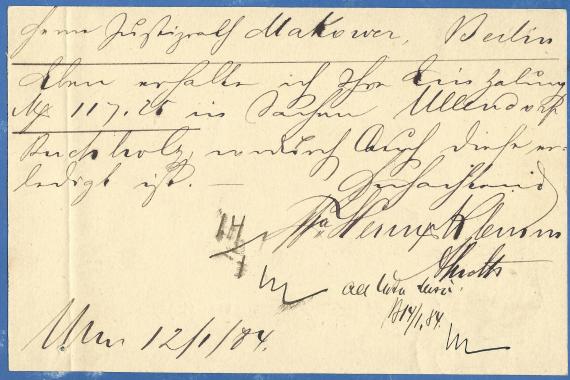 Herrn Justizrath Makower, Berlin
Eben erhalte ich Ihre Einzalung
M 117.25 in Sachen Ullendorff
Buchholz, wodurch auch diese er-
ledigt ist. —
Hochachtend
14
1
ad
14/1.84.
Ulm 12/1/84.